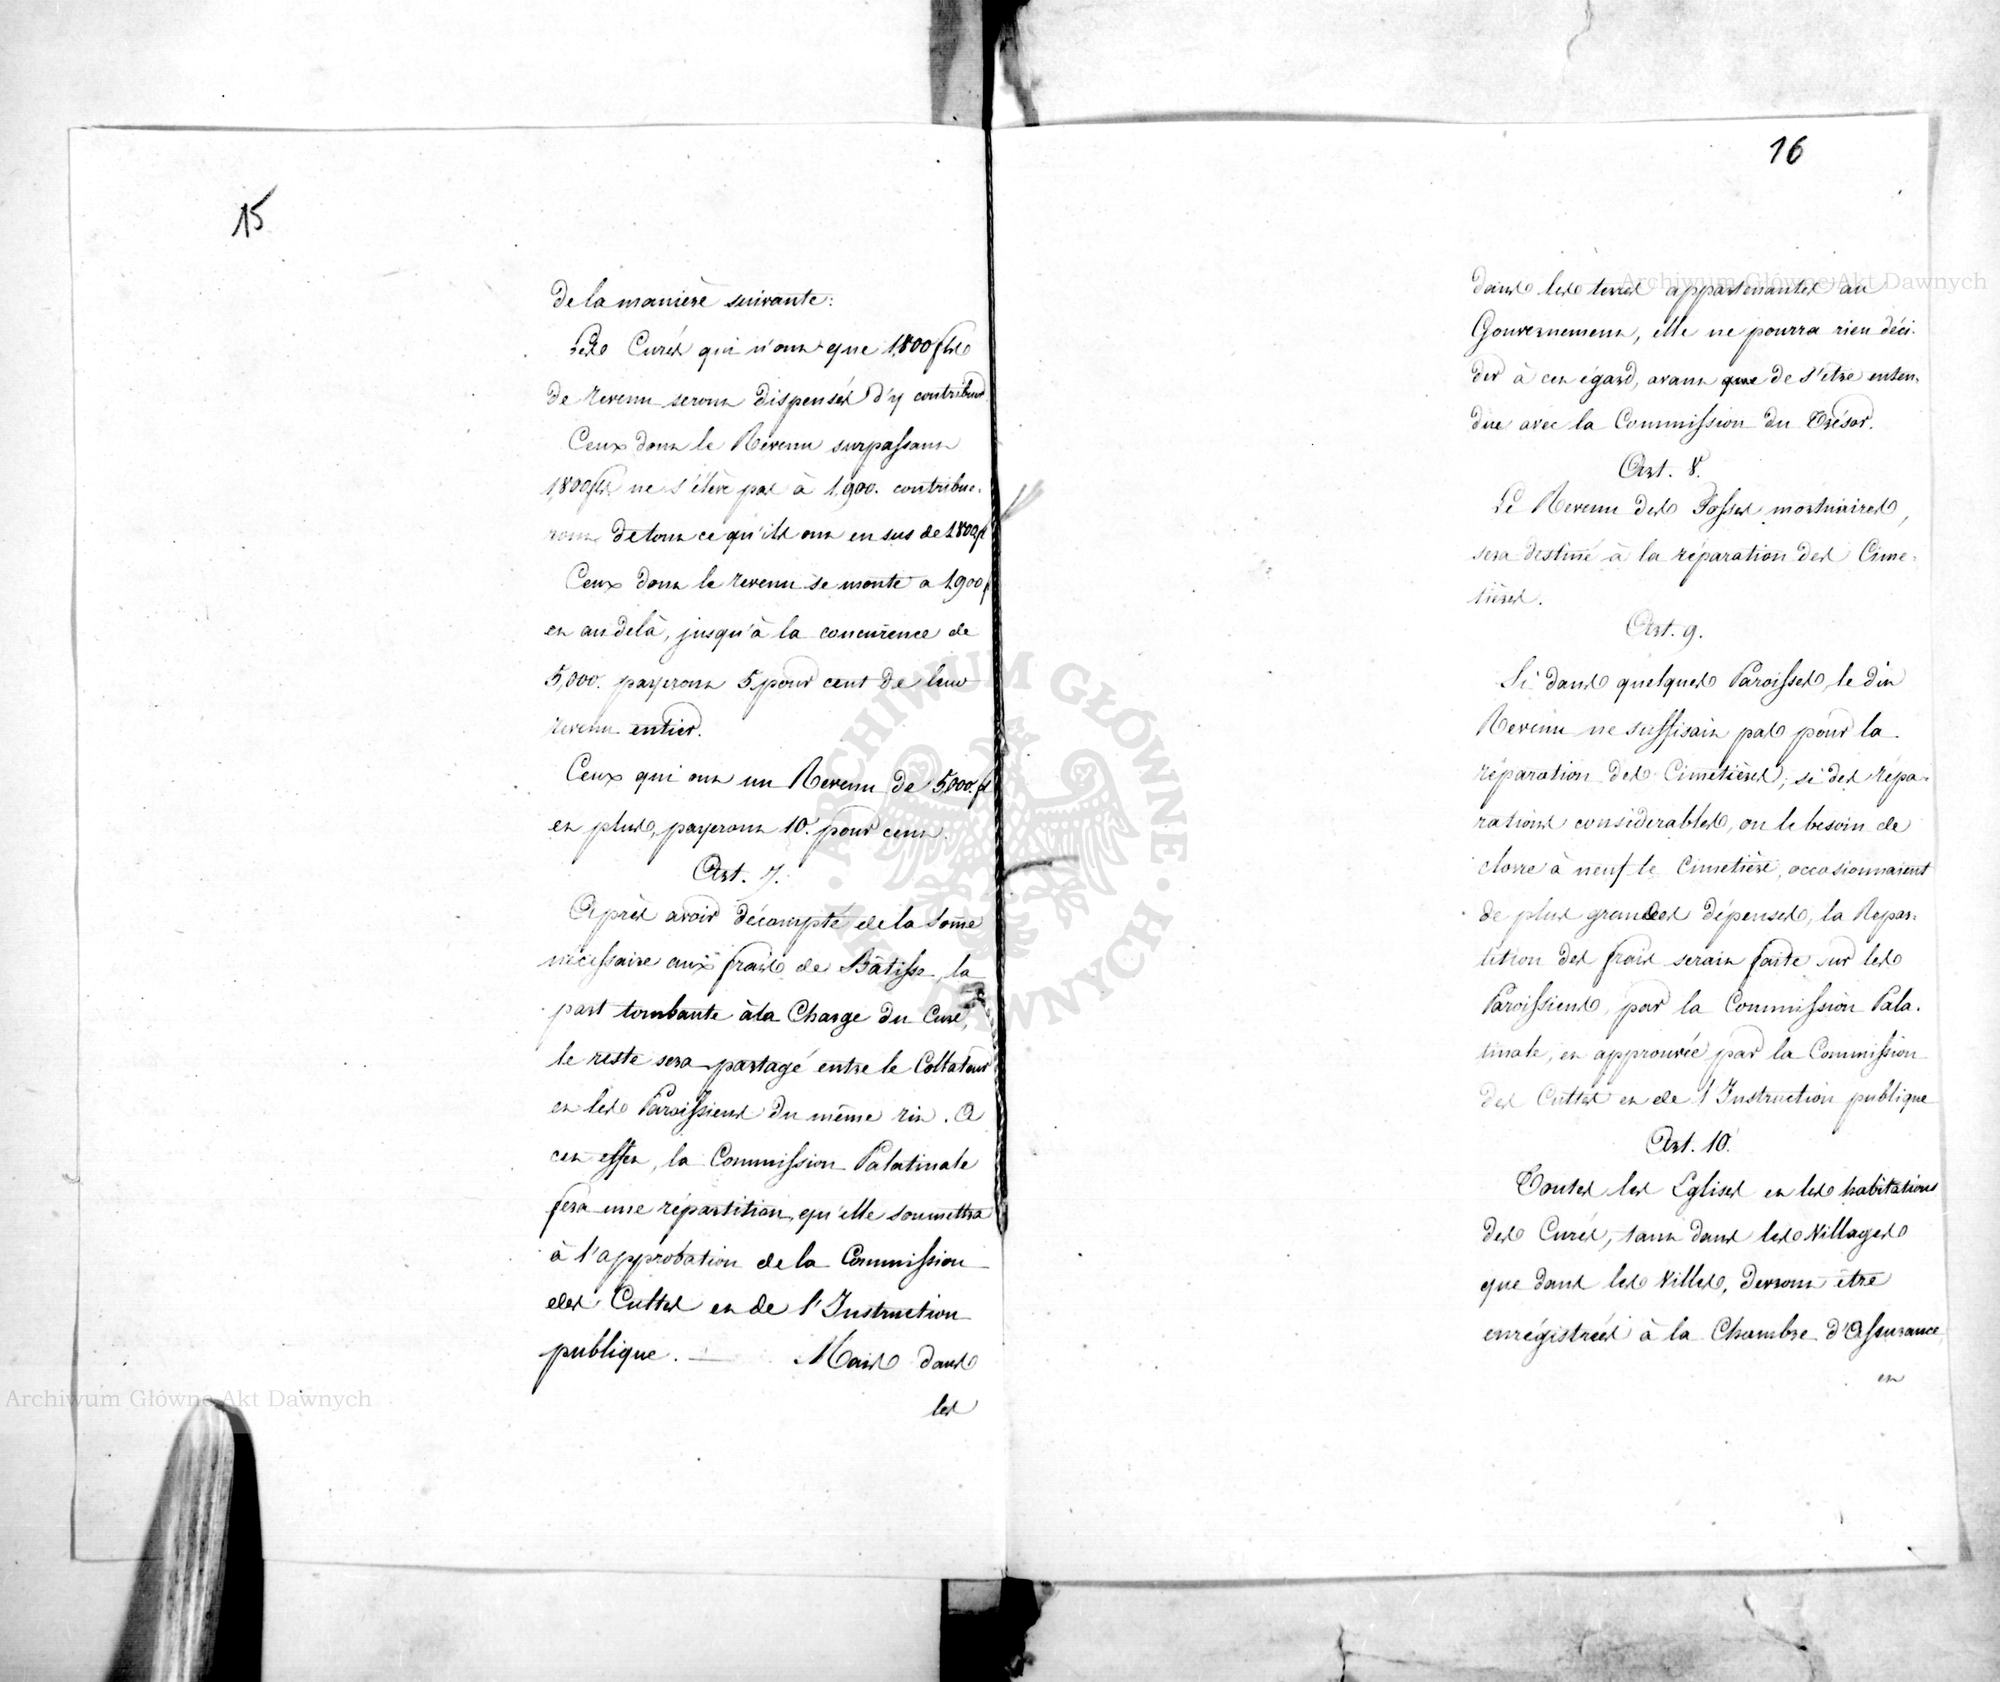 15
de la manière suivante:
Les Curés qui n'ont que 1,800 fls
de revenu seront dispensés d'y contribuer.
Ceux dont le Revenu surpassant
1,800 fls ne s'élève pas à 1,900. contribue-
ront de tout ce qu'ils ont en sus de 1800 fl
Ceux dont le revenu se monte a 1900 f
et au delà, jusqu'à la concurence de
5,000. payeront 5 pour cent de leur
revenu entier.
Ceux qui ont un Revenu de 5,000. fl
et plus, payeront 10. pour cent.
Art. 7.
Après avoir décompté de la some
nécessaire aux frais de Bâtisse, la
part tombante à la Charge du Curé,
le reste sera partagé entre le Collateur
et les Paroissiens du même rit. A
cet effet, la Commission Palatinale
fera une répartition, qu'elle soumettra
à l'approbation de la Commission
des Cultes et de l'Instruction
publique. — Mais dans
les
16
dans les terres appartenantes au
Gouvernement, elle ne pourra rien déci-
der à cet égard, avant que de s'etre enten-
due avec la Commission du Trésor.
Art. 8.
Le Revenu des Fosses mortuaires,
sera destiné à la réparation des Cime-
tières.
Art. 9.
Si dans quelques Paroisses, le dit
Revenu ne suffisait pas pour la
réparation des Cimetières, si des répa-
rations considerables, ou le besoin de
clorre à neuf le Cimetière, occasionnaient
de plus grandes dépenses, la Repar-
tition des frais serait faite sur les
Paroissiens, par la Commission Pala-
tinale, et approuvée par la Commission
des Cultes et de l'Instruction publique
Art. 10.
Toutes les Eglises et les habitations
des Curés, tant dans les Villages
que dans les Villes, devront être
enrégistrées à la Chambre d'Assurance
et
Archiwum Główne Akt Dawnych
Archiwum Główne Akt Dawnych
ARCHIWUM GŁÓWNE AKT DAWNYCH